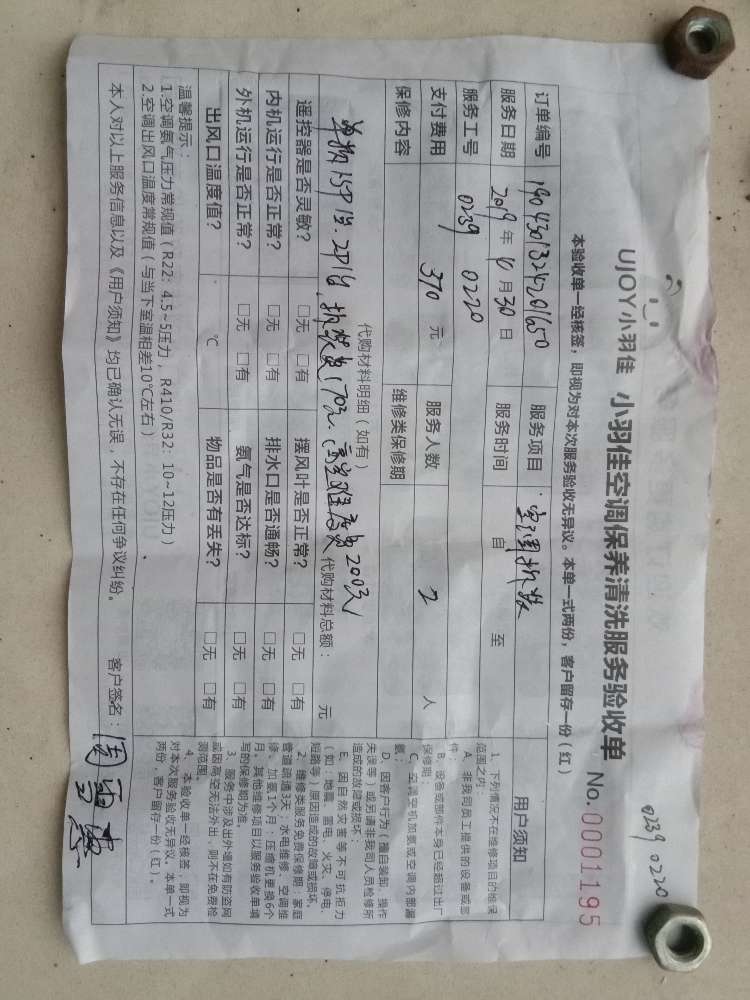 0239 0220
UJOY小羽佳 小羽佳空调保养清洗服务验收单 No.0001195
本验收单一经核签，即视为对本次服务验收无异议。本单一式两份，客户留存一份（红）
订单编号 服务项目
服务日期 2019 年 4 月 30 日 服务时间 自 至
服务工号 0239 0220
支付费用 370 元 服务人数 2 人
保修内容 维修类保修期
代购材料明细（如有）
代购材料总额： 元
遥控器是否灵敏？ □无 □有 摆风叶是否正常？ □无 □有
内机运行是否正常？ □无 □有 排水口是否通畅？ □无 □有
外机运行是否正常？ □无 □有 氨气是否达标？ □无 □有
出风口温度值？ ℃ 物品是否有丢失？ □无 □有
温馨提示：
1.空调氨气压力常规值（R22: 4.5~5压力，R410/R32: 10~12压力）
2.空调出风口温度常规值（与当下室温相差10℃左右）
本人对以上服务信息以及《用户须知》均已确认无误，不存在任何争议纠纷。 客户签名：
用户须知
1、下列情况不在维修项目的维保
范围之内：
A、非我司员工提供的设备或部
件；
B、设备或部件本身已经超过出厂
保修期；
C、空调空机加氨或空调内部漏
氨；
D、因客户行为（擅自装卸、操作
失误等）或另请非我司人员检修所
造成的故障或损坏；
E、因自然灾害等不可抗拒力
（如：地震、雷电、火灾、停电、
短路等）原因造成的故障或损坏。
2、维修类服务免费保修期：家庭
管道疏通3天；水电维修、空调维
修、加氨1个月；压缩机更换6个
月。其他维修项目以服务验收单填
写的保修期为准。
3、服务中涉及出外墙如有防盗网
或因高空无法外出，则不在免费检
测范围。
4、本验收单一经核签，即视为
对本次服务验收无异议。本单一式
两份，客户留存一份（红）。